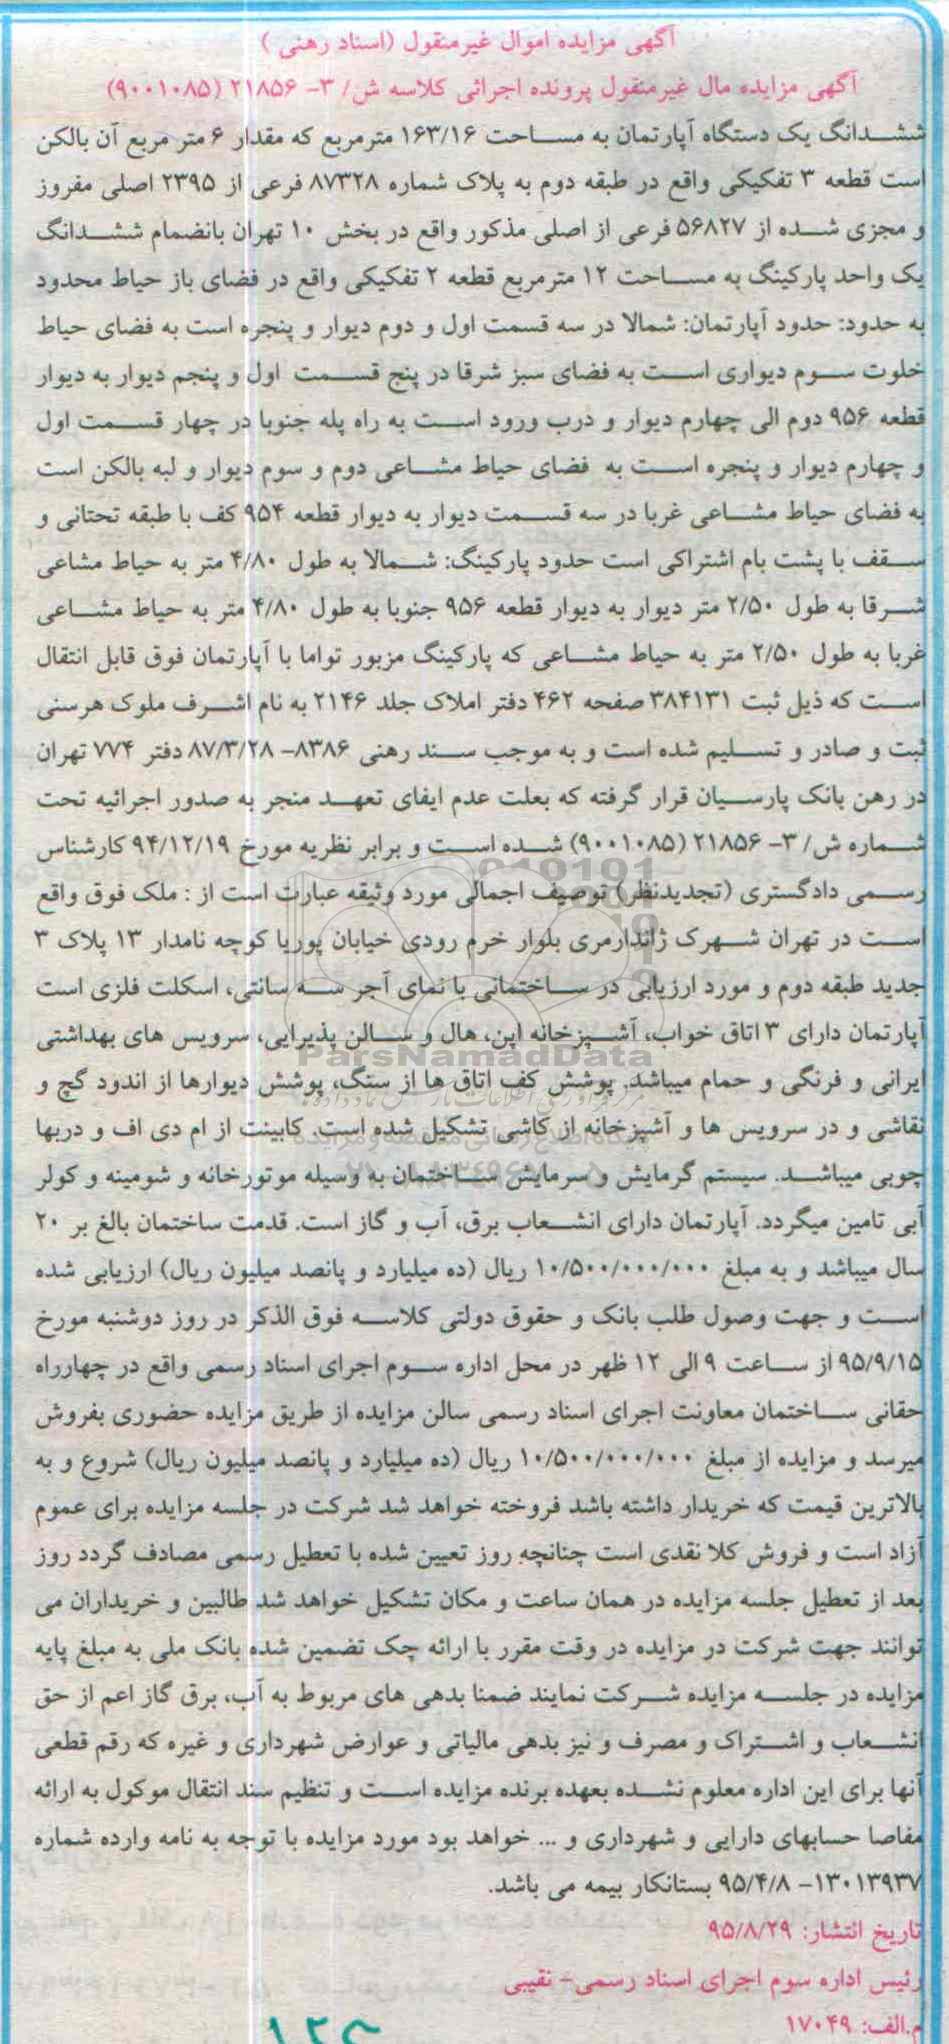 آگهی مزایده اموال غیرمنقول (اسناد رهنی )
آگهی مزایده مال غیرمنقول پرونده اجرائی کلاسه ش/ ۳- ۲۱۸۵۶ (۹۰۰۱۰۸۵)
ششدانگ یک دستگاه آپارتمان به مساحت ۱۶۳/۱۶ مترمربع که مقدار ۶ متر مربع آن بالکن
است قطعه ۳ تفکیکی واقع در طبقه دوم به پلاک شماره ۸۷۳۲۸ فرعی از ۲۳۹۵ اصلی مفروز
و مجزی شده از ۵۶۸۲۷ فرعی از اصلی مذکور واقع در بخش ۱۰ تهران بانضمام ششدانگ
یک واحد پارکینگ به مساحت ۱۲ مترمربع قطعه ۲ تفکیکی واقع در فضای باز حیاط محدود
به حدود: حدود آپارتمان: شمالا در سه قسمت اول و دوم دیوار و پنجره است به فضای حیاط
خلوت سوم دیواری است به فضای سبز شرقا در پنج قسمت اول و پنجم دیوار به دیوار
قطعه ۹۵۶ دوم الی چهارم دیوار و درب ورود است به راه پله جنوبا در چهار قسمت اول
و چهارم دیوار و پنجره است به فضای حیاط مشاعی دوم و سوم دیوار و لبه بالکن است
به فضای حیاط مشاعی غربا در سه قسمت دیوار به دیوار قطعه ۹۵۴ کف با طبقه تحتانی و
سقف با پشت بام اشتراکی است حدود پارکینگ: شمالا به طول ۴/۸۰ متر به حیاط مشاعی
شرقا به طول ۲/۵۰ متر دیوار به دیوار قطعه ۹۵۶ جنوبا به طول ۴/۸۰ متر به حیاط مشاعی
غربا به طول ۲/۵۰ متر به حیاط مشاعی که پارکینگ مزبور تواما با آپارتمان فوق قابل انتقال
است که ذیل ثبت ۳۸۴۱۳۱ صفحه ۴۶۲ دفتر املاک جلد ۲۱۴۶ به نام اشرف ملوک هرسنی
ثبت و صادر و تسلیم شده است و به موجب سند رهنی ۸۳۸۶- ۸۷/۳/۲۸ دفتر ۷۷۴ تهران
در رهن بانک پارسیان قرار گرفته که بعلت عدم ایفای تعهد منجر به صدور اجرائیه تحت
شماره ش/ ۳- ۲۱۸۵۶ (۹۰۰۱۰۸۵) شده است و برابر نظریه مورخ ۹۴/۱۲/۱۹ کارشناس
رسمی دادگستری (تجدیدنظر) توصیف اجمالی مورد وثیقه عبارت است از : ملک فوق واقع
است در تهران شهرک ژاندارمری بلوار خرم رودی خیابان پوریا کوچه نامدار ۱۳ پلاک ۳
جدید طبقه دوم و مورد ارزیابی در ساختمانی با نمای آجر سه سانتی، اسکلت فلزی است
آپارتمان دارای ۳ اتاق خواب، آشپزخانه اپن، هال و سالن پذیرایی، سرویس های بهداشتی
ParsNamadData
ایرانی و فرنگی و حمام میباشد. پوشش کف اتاق ها از سنگ، پوشش دیوارها از اندود گچ و
نقاشی و در سرویس ها و آشپزخانه از کاشی تشکیل شده است. کابینت از ام دی اف و دربها
چوبی میباشد. سیستم گرمایش و سرمایش ساختمان به وسیله موتورخانه و شومینه و کولر
آبی تامین میگردد. آپارتمان دارای انشعاب برق، آب و گاز است. قدمت ساختمان بالغ بر ۲۰
سال میباشد و به مبلغ ۱۰/۵۰۰/۰۰۰/۰۰۰ ریال (ده میلیارد و پانصد میلیون ریال) ارزیابی شده
است و جهت وصول طلب بانک و حقوق دولتی کلاسه فوق الذکر در روز دوشنبه مورخ
۹۵/۹/۱۵ از ساعت ۹ الی ۱۲ ظهر در محل اداره سوم اجرای اسناد رسمی واقع در چهارراه
حقانی ساختمان معاونت اجرای اسناد رسمی سالن مزایده از طریق مزایده حضوری بفروش
میرسد و مزایده از مبلغ ۱۰/۵۰۰/۰۰۰/۰۰۰ ریال (ده میلیارد و پانصد میلیون ریال) شروع و به
بالاترین قیمت که خریدار داشته باشد فروخته خواهد شد شرکت در جلسه مزایده برای عموم
آزاد است و فروش کلا نقدی است چنانچه روز تعیین شده با تعطیل رسمی مصادف گردد روز
بعد از تعطیل جلسه مزایده در همان ساعت و مکان تشکیل خواهد شد طالبین و خریداران می
توانند جهت شرکت در مزایده در وقت مقرر با ارائه چک تضمین شده بانک ملی به مبلغ پایه
مزایده در جلسه مزایده شرکت نمایند ضمنا بدهی های مربوط به آب، برق گاز اعم از حق
انشعاب و اشتراک و مصرف و نیز بدهی مالیاتی و عوارض شهرداری و غیره که رقم قطعی
آنها برای این اداره معلوم نشده بعهده برنده مزایده است و تنظیم سند انتقال موکول به ارائه
مفاصا حسابهای دارایی و شهرداری و ... خواهد بود مورد مزایده با توجه به نامه وارده شماره
۱۳۰۱۳۹۳۷- ۹۵/۴/۸ بستانکار بیمه می باشد.
تاریخ انتشار: ۹۵/۸/۲۹
رئیس اداره سوم اجرای اسناد رسمی- نقیبی
م.الف: ۱۷۰۴۹